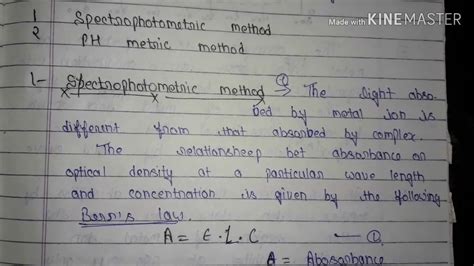 Made with KINEMASTER
1 Spectrophotometric method
2 PH metric method
1- Spectrophotometric method → ① The light abso-
bed by metal ion is
different from that absorbed by complex.
The relationsheep bet absorbance or
optical density at a particular wave length
and concentration is given by the following
Beer's law.
A = ε . L . C — ①
A = Abosorbance